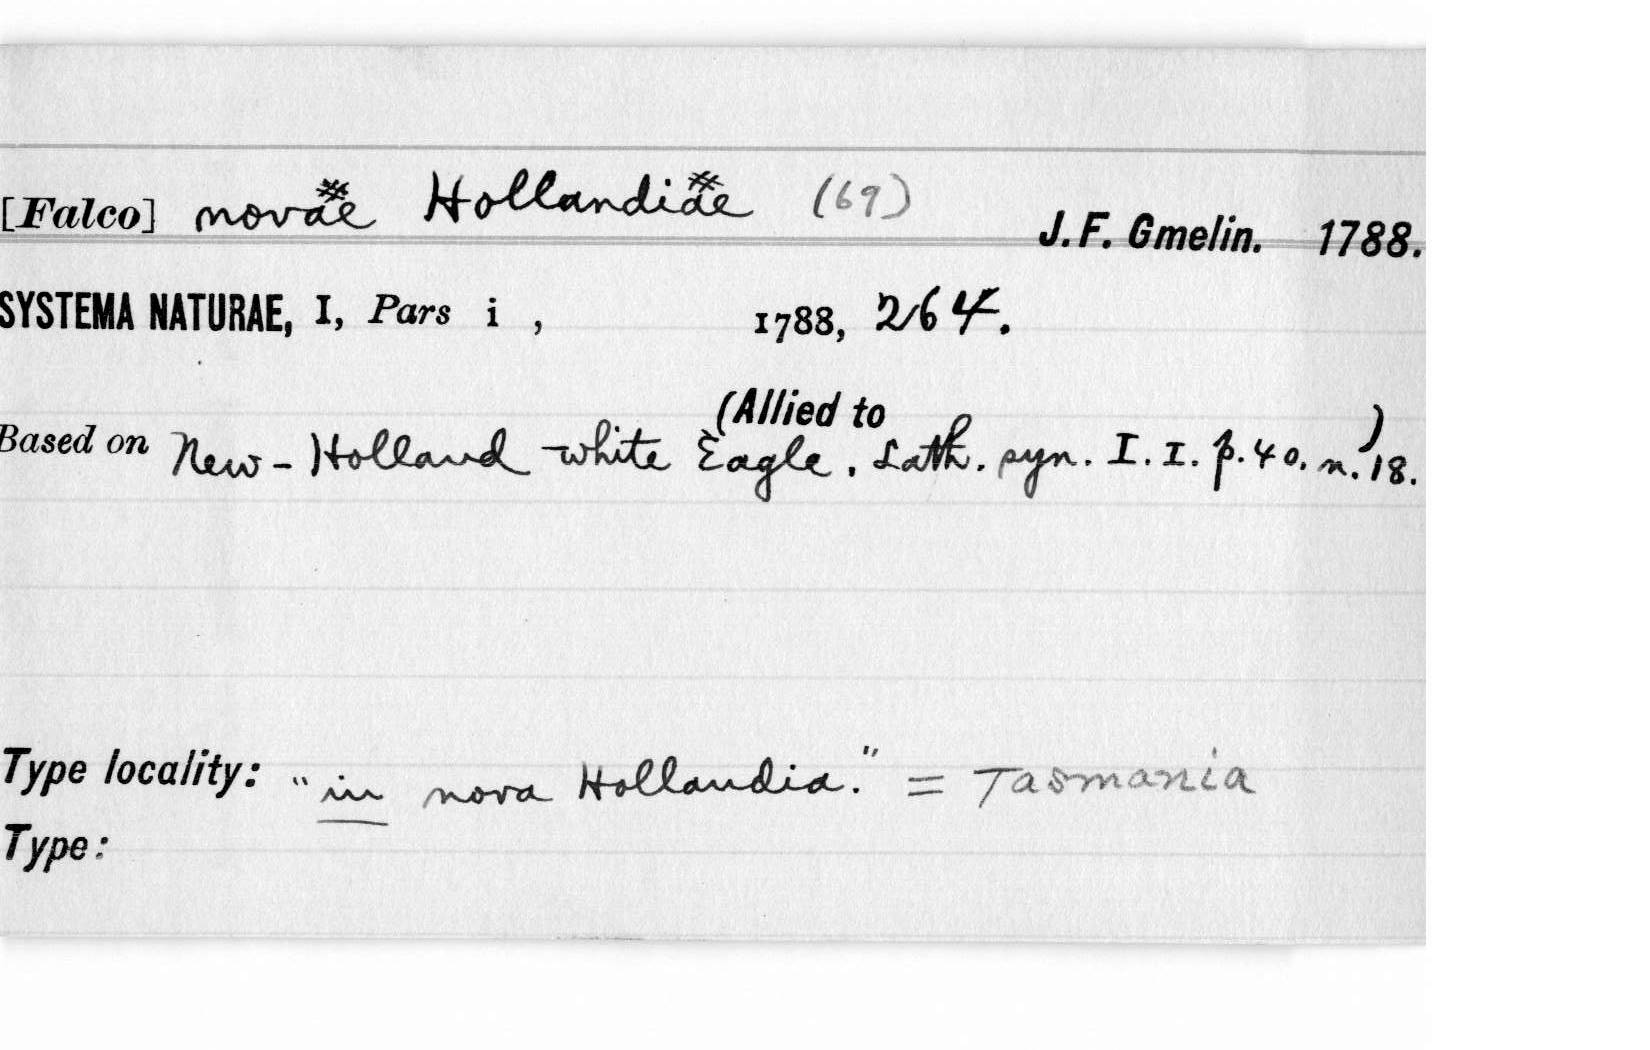 [Falco] novae Hollandiae (69)
J. F. Gmelin. 1788.
SYSTEMA NATURAE, I, Pars i , 1788, 264.
(Allied to )
Based on New-Holland white Eagle. Lath. syn. I. I. p. 40. n. 18.
Type locality: "in nova Hollandia." = Tasmania
Type: